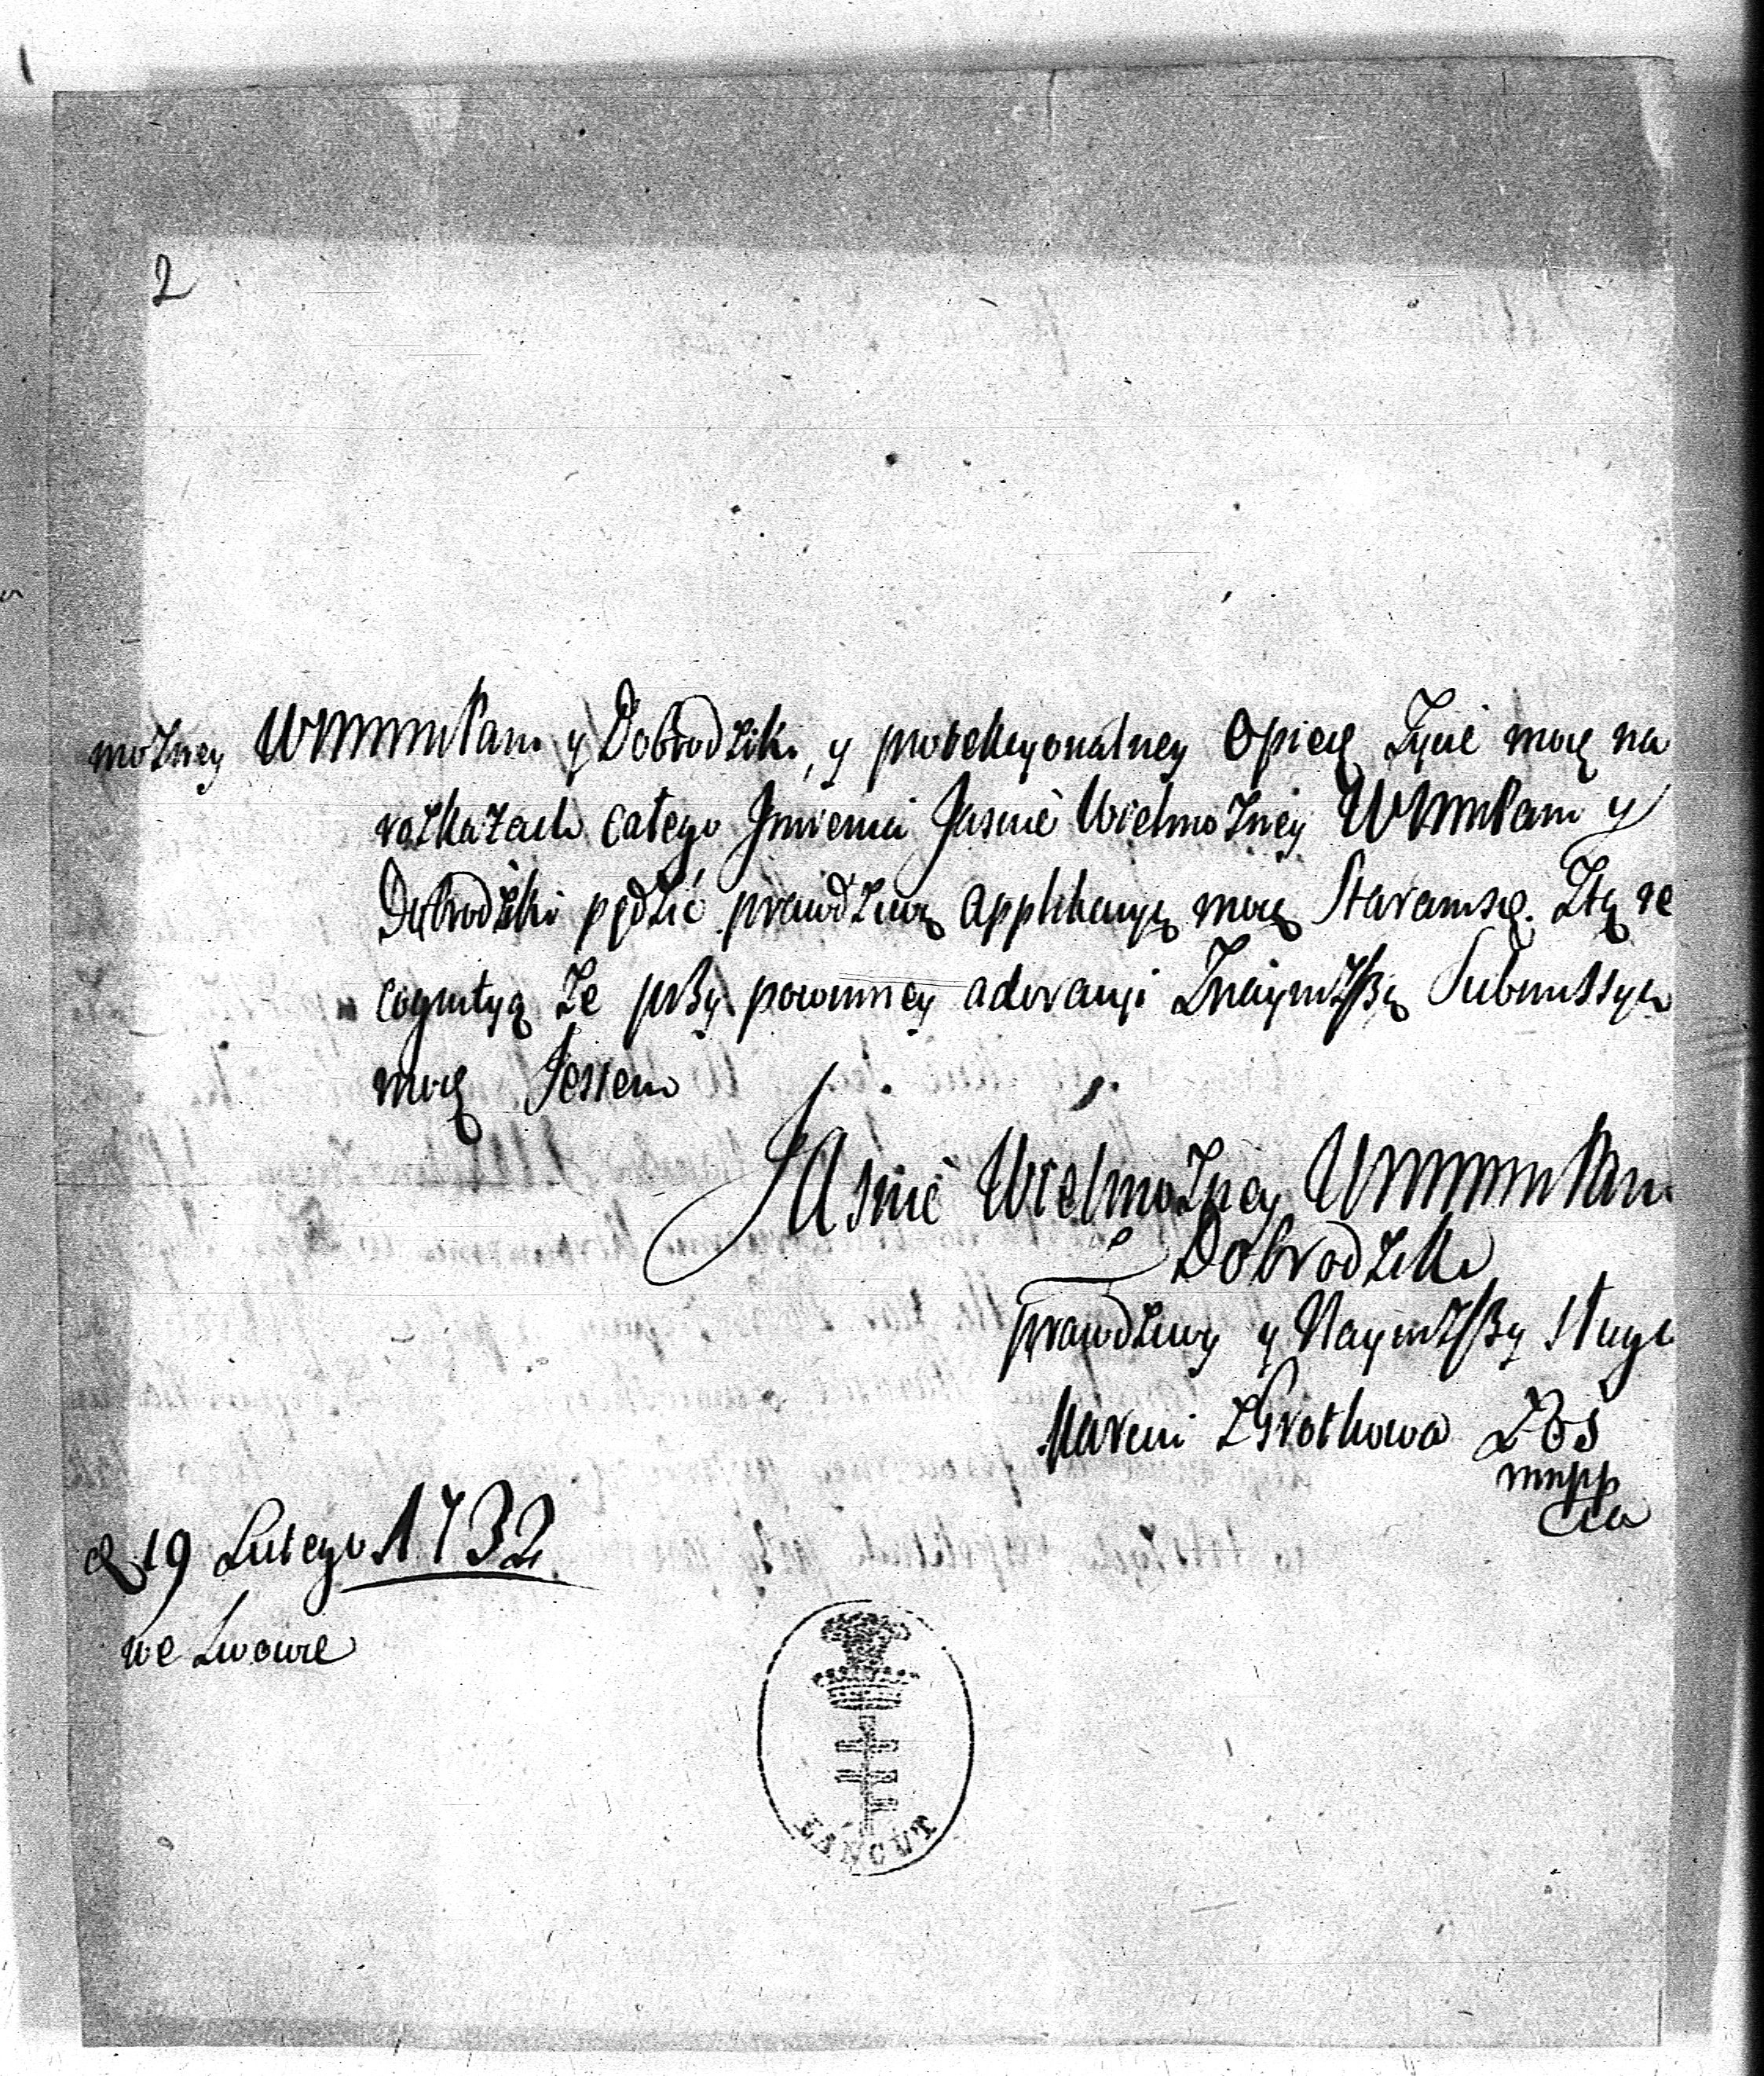 2
możney WMMMPani y Dobrodziki, y protekcyonalney Opiecę Życie moię na
rozkazach całego Jmienia Jasnie Wielmożney WMMPani y
Dobrodziki pędzić prawdziwą applikacyą moią Staramsię. Ztą re
cognityą że przy powinney adoracyi Znayniższą Submissyą
moią Jestem
JAsnie Wielmożney WMMMPani
Dobrodziki
prawdziwy y Nayniższy sługa
Marcin Grothowa
mpp
d 19 Lutego 1732
we Lwowie
ŁAŃCUT